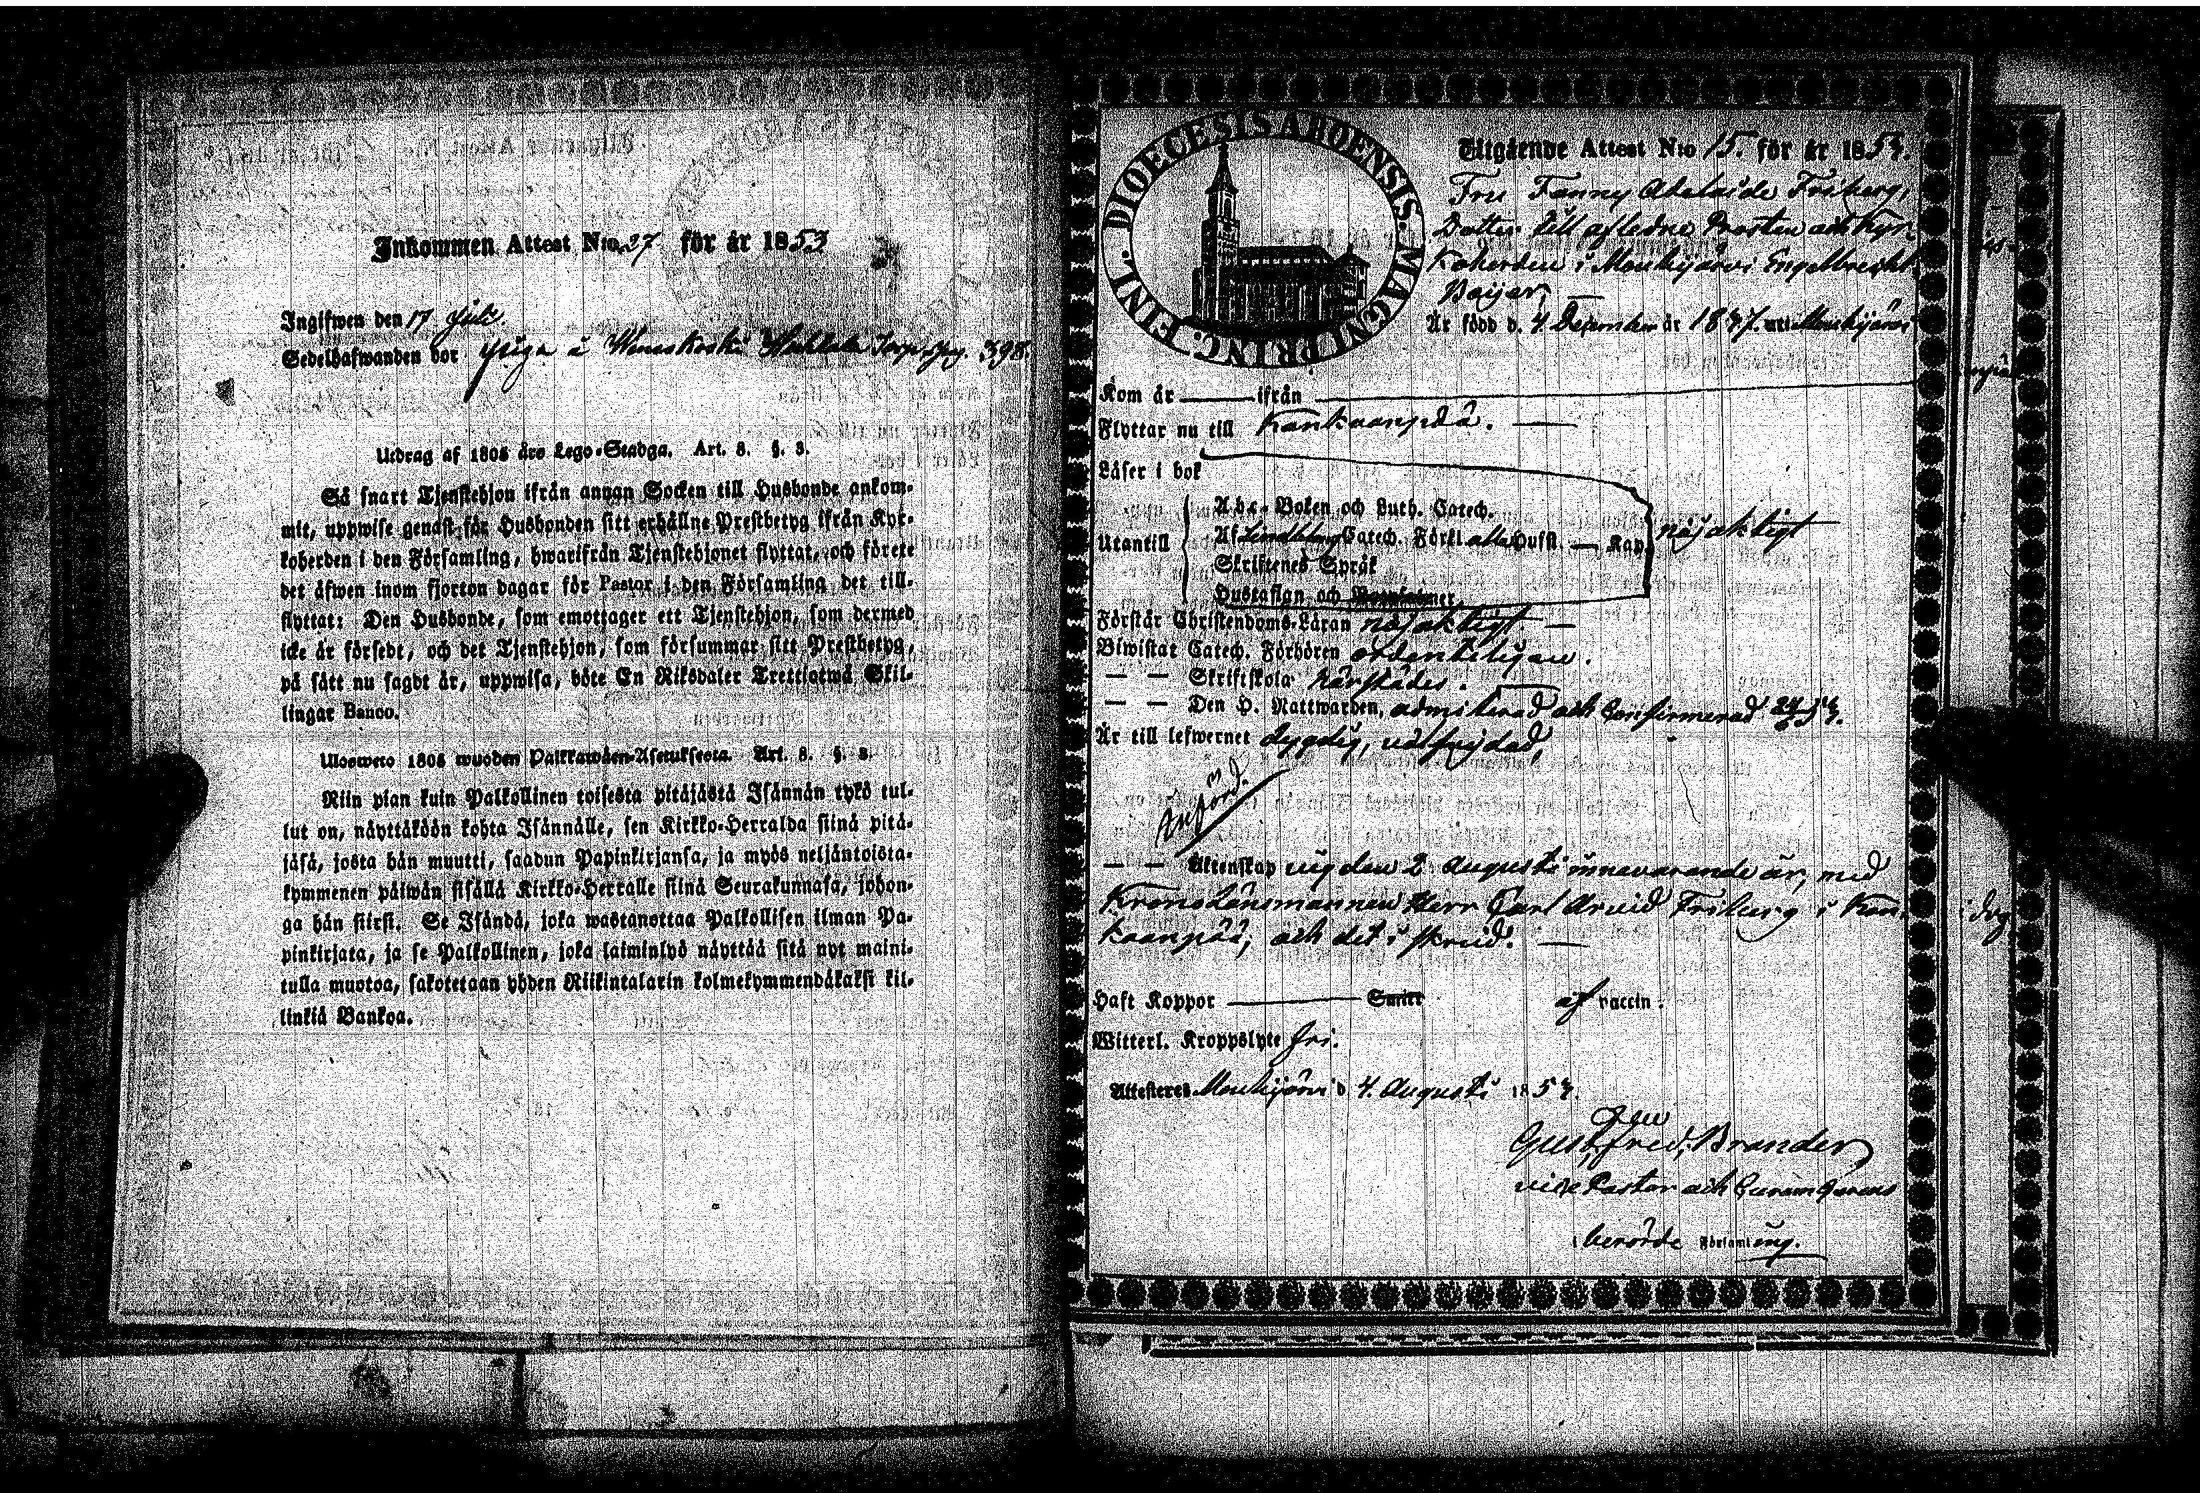 Inkommen Attest N:o 37 för år 1853
Ingifwen den 17 Juli.
Sedelhafwanden bor
Utdrag af 1805 års Lego-Stadga. Art. 8. §. 3.
Så snart Tjenstehjon ifrån annan Socken till Husbonde ankom-
mit, uppwise genast för Husbonden sitt erhållne Prestbetyg ifrån Kyr-
koherden i den Församling, hwarifrån Tjenstehjonet flyttat, och förete
det äfwen inom fjorton dagar för Pastor i den Församling det till-
flyttat: Den Husbonde, som emottager ett Tjenstehjon, som dermed
icke är försedt, och det Tjenstehjon, som försummar sitt Prestbetyg,
på sätt nu sagdt är, uppwisa, böte En Riksdaler Trettiotwå Skil-
lingar Banco.
Ulosweto 1805 wuoden Palkkawäen-Asetuksesta. Art. 8. §. 3.
Niin pian kuin Palkollinen toisesta pitäjästä Isännän tykö tul-
lut on, näyttäköön kohta Isännälle, sen Kirkko-Herralda siinä pitä-
jäsä, josta hän muutti, saadun Papinkirjansa, ja myös neljäntoista-
kymmenen päiwän sisällä Kirkko-Herralle siinä Seurakunnasa, johon-
ga hän siirsi. Se Isändä, joka wastanottaa Palkollisen ilman Pa-
pinkirjata, ja se Palkollinen, joka laiminlyö näyttää sitä nyt maini-
tulla muotoa, sakotetaan yhden Riikintalarin kolmekymmendäkaksi kil-
linkiä Bankoa.
DIOECESIS ABOENSIS. MAGNI PRINC. FINL.
Utgående Attest N:o 15. för år 1854.
Fru Fanny Adelaide Friberg,
Dotter till afledne Prosten och Kyr-
koherden i Mouhijärvi Engelbrecht
Baijar,
Är född d. 4 December år 1837. uti Mouhijärvi
Kom år ifrån
Flyttar nu till Kankaanpää.
Läser i bok
A.b.c.-Boken och Luth. Catech.
Utantill Af Lindblom Catech. Förkl alla Hufst. Kap. nöjaktigt
Skriftenes Språk
Hustaflan och
Förstår Christendoms-Läran nöjaktigt
Biwistat Catech. Förhören ordenteligen.
Skriftskola härstädes.
Den H. Nattwarden, admitterad och Confirmerad
Är till lefwernet dygdig, välfrejdad,
Äktenskap vigd den 2 Augusti innevarande år, med
Krono Länsmannen Herr Carl Arvid Friberg i Kan-
kaanpää, och det i skrud.
Haft Koppor Smitt af vaccin.
Witterl. Kroppslyte fri.
Attesteras Mouhijärvi d 4. Augusti 1854.
Gust. Fred. Brander,
vice Pastor och Curam Gerens
i berörde Församling.